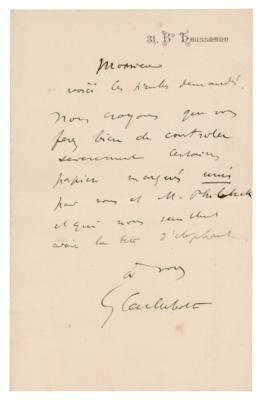 31, Bd Haussmann
Monsieur
voici les timbres demandés.
Nous croyons que vous
ferez bien de controler
severement certains
papiers marqués unis
par vous et M. Philbrick
et qui nous semblent
avoir la tete d'elephant
à vous
G Caillebotte